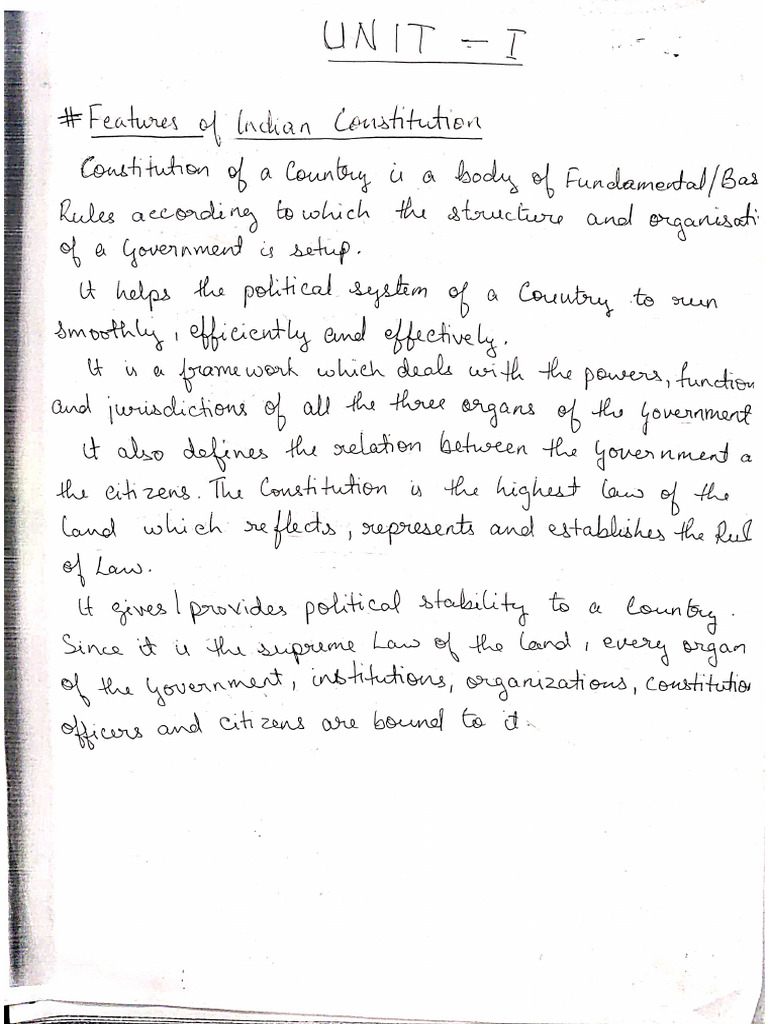 UNIT - I
# Features of Indian Constitution
Constitution of a Country is a body of Fundamental/Bas
Rules according to which the structure and organisati
of a Government is setup.
It helps the political system of a Country to run
smoothly, efficiently and effectively.
It is a framework which deals with the powers, function
and jurisdictions of all the three organs of the Government
It also defines the relation between the Government a
the citizens. The Constitution is the highest law of the
land which reflects, represents and establishes the Rul
of Law.
It gives/provides political stability to a Country.
Since it is the supreme Law of the land, every organ
of the Government, institutions, organizations, constitutio
officers and citizens are bound to it.